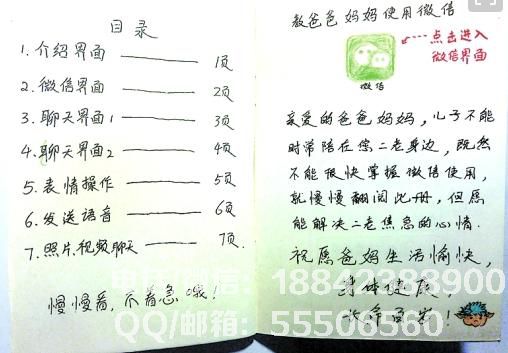 目录
1. 介绍界面 —— 1页
2. 微信界面 —— 2页
3. 聊天界面1 —— 3页
4. 聊天界面2 —— 4页
5. 表情操作 —— 5页
6. 发送语音 —— 6页
7. 照片.视频聊天 —— 7页.
慢慢看,不着急哦!
教爸爸妈妈使用微信
点击进入
微信界面
微信
亲爱的爸爸妈妈,儿子不能
时常陪在您二老身边,既然
不能很快掌握微信使用,
就慢慢翻阅此册,但愿
能解决二老焦急的心情.
祝愿爸妈生活愉快,
身体健康,
18842388900
QQ/邮箱: 55506560